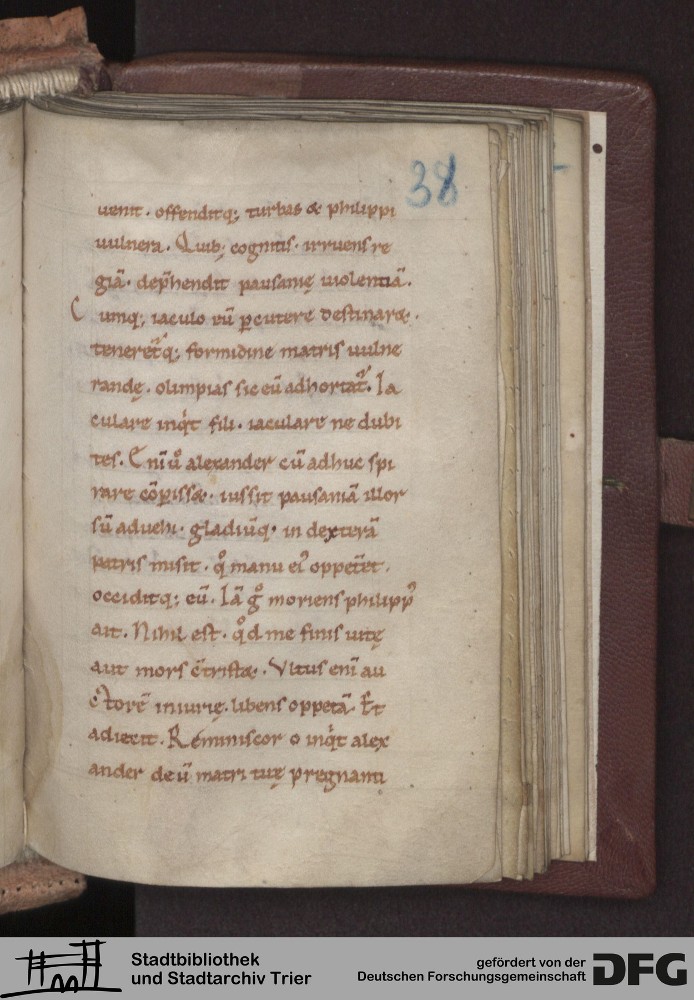 38
uenit. offenditq; turbas & philippi
uulnera. Quib; cognitis. irruens re
giā. dep̄hendit pausanię uiolentiā.
Cumq; iaculo eū ꝑcutere destinar&.
teneretq; formidine matris uulne
randę. olimpias sic eū adhortat᷑. Ia
culare inqͥt fili. iaculare ne dubi
tes. Cui uͦ alexander cū adhuc spi
rare cōꝑiss&. iussit pausaniā illor
sū aduehi. gladiūq; in dexterā
patris misit. qͦ manu ei᾽ oppet&.
occiditq; eū. Iā gͦ moriens philipp᾽
ait. Nihil est. qͦd me finis uitę
aut mors c̄trist&. Vltus enī au
ctorē iniurię. libens oppetā. Et
adiecit. Reminiscor o inqͥt alex
ander deū matri tuę pregnanti
Stadtbibliothek
und Stadtarchiv Trier
gefördert von der
Deutschen Forschungsgemeinschaft
DFG